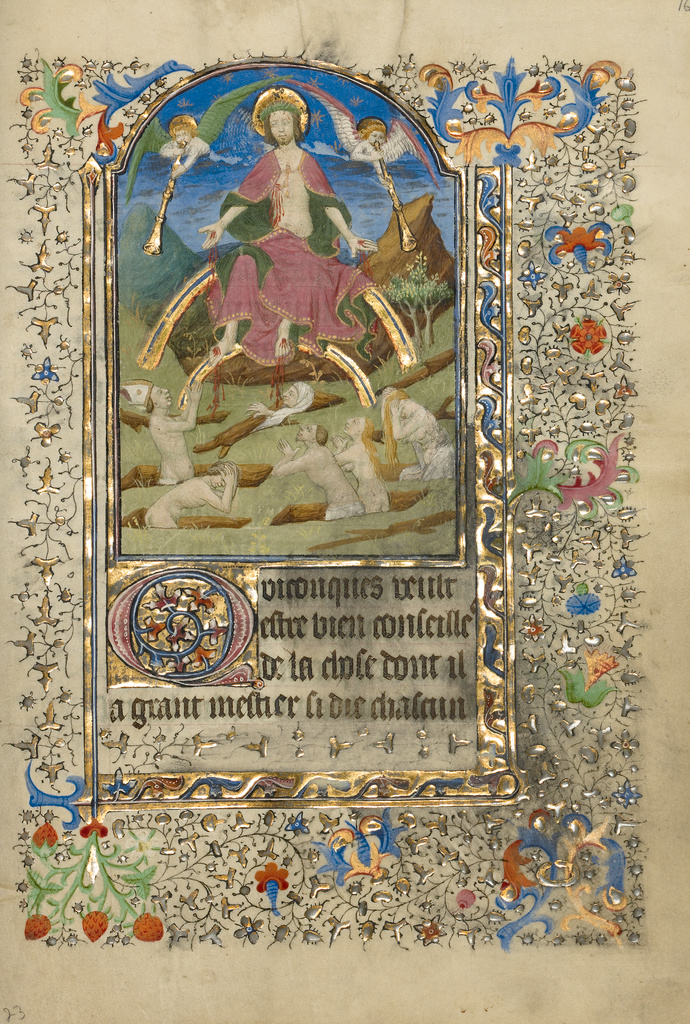 Quiconques veult
estre bien conseille
de la chose dont il
a grant mestier si die chascun
23